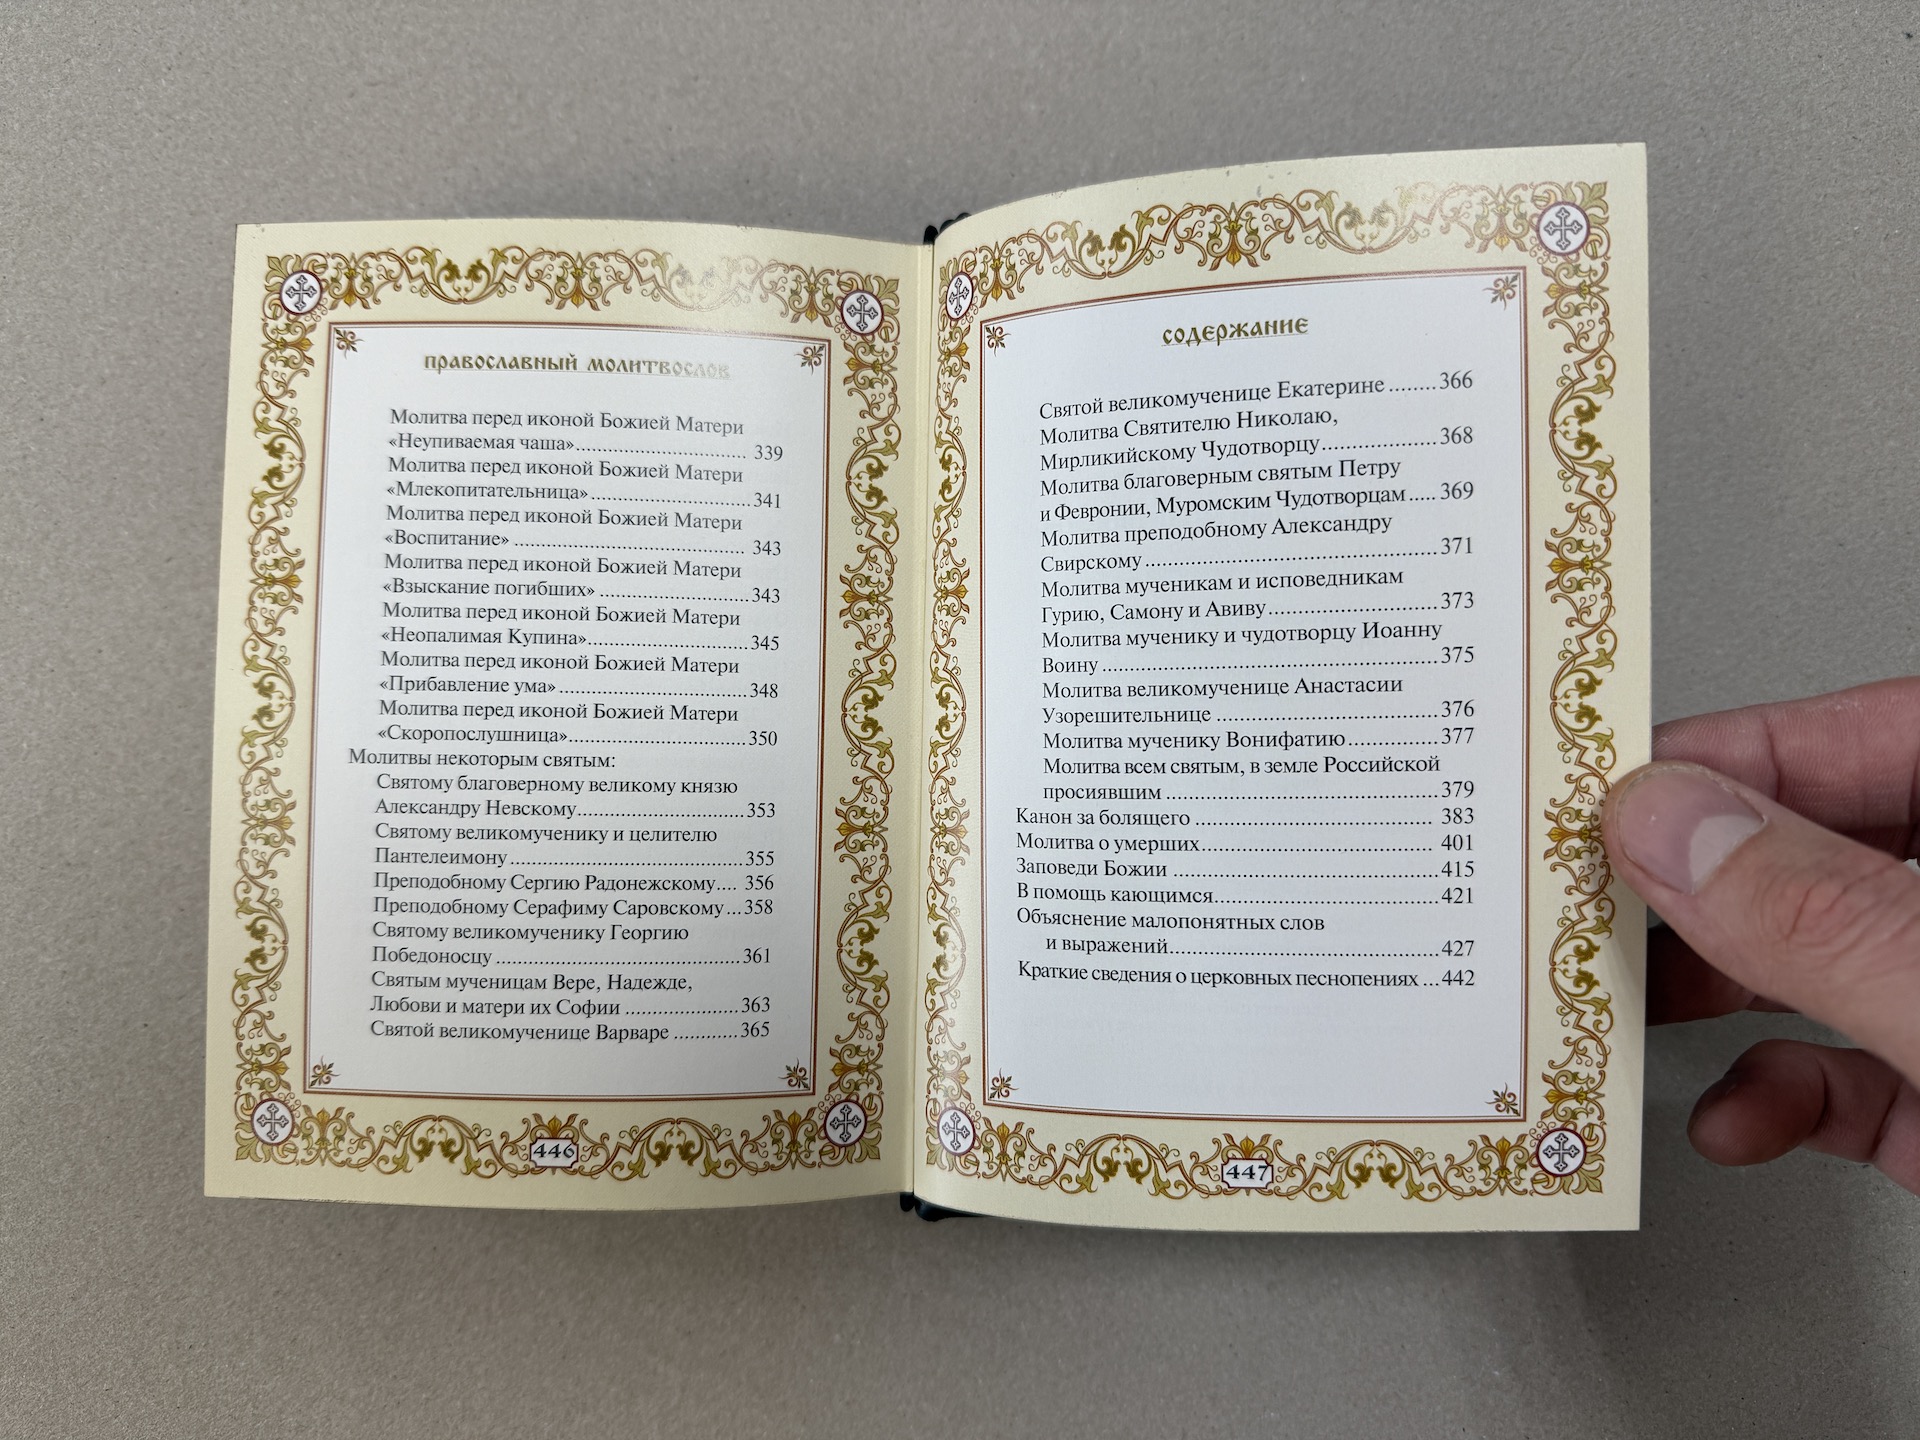 православный молитвослов
Молитва перед иконой Божией Матери
«Неупиваемая чаша».............................. 339
Молитва перед иконой Божией Матери
«Млекопитательница»............................341
Молитва перед иконой Божией Матери
«Воспитание» ........................................ 343
Молитва перед иконой Божией Матери
«Взыскание погибших» ..........................343
Молитва перед иконой Божией Матери
«Неопалимая Купина»............................345
Молитва перед иконой Божией Матери
«Прибавление ума» .................................348
Молитва перед иконой Божией Матери
«Скоропослушница»...............................350
Молитвы некоторым святым:
Святому благоверному великому князю
Александру Невскому.............................353
Святому великомученику и целителю
Пантелеимону.........................................355
Преподобному Сергию Радонежскому.... 356
Преподобному Серафиму Саровскому...358
Святому великомученику Георгию
Победоносцу ...........................................361
Святым мученицам Вере, Надежде,
Любови и матери их Софии ....................363
Святой великомученице Варваре ...........365
446
содержание
Святой великомученице Екатерине ........366
Молитва Святителю Николаю,
Мирликийскому Чудотворцу...................368
Молитва благоверным святым Петру
и Февронии, Муромским Чудотворцам.....369
Молитва преподобному Александру
Свирскому................................................371
Молитва мученикам и исповедникам
Гурию, Самону и Авиву............................373
Молитва мученику и чудотворцу Иоанну
Воину .......................................................375
Молитва великомученице Анастасии
Узорешительнице ....................................376
Молитва мученику Вонифатию...............377
Молитва всем святым, в земле Российской
просиявшим ............................................379
Канон за болящего ...................................... 383
Молитва о умерших..................................... 401
Заповеди Божии ...........................................415
В помощь кающимся.....................................421
Объяснение малопонятных слов
и выражений............................................427
Краткие сведения о церковных песнопениях ...442
447